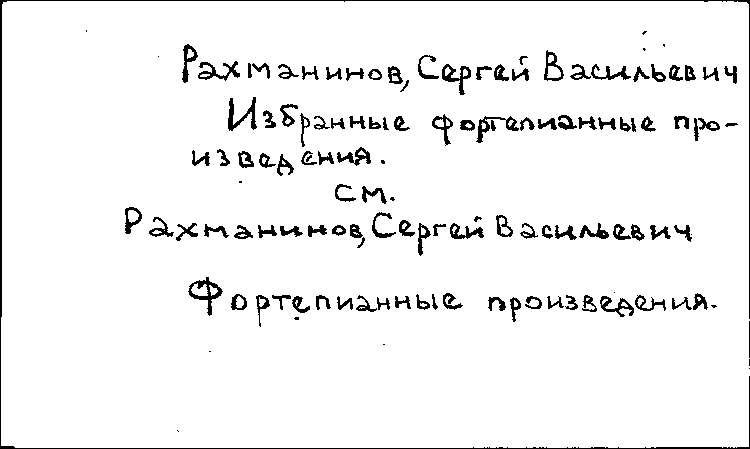 Рахманинов, Сергей Васильевич
Избранные фортепианные про-
изведения.
см.
Рахманинов, Сергей Васильевич
Фортепианные произведения.